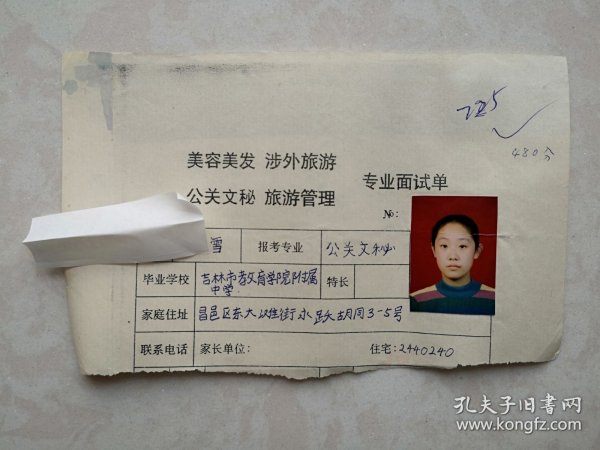 725
480分
美容美发 涉外旅游
公关文秘 旅游管理
专业面试单
№:
雪 报考专业 公关文秘
毕业学校 吉林市教育学院附属中学 特长
家庭住址 昌邑区东大滩街永跃胡同3-5号
联系电话 家长单位: 住宅:2440240
孔夫子旧书网
www.kongfz.com